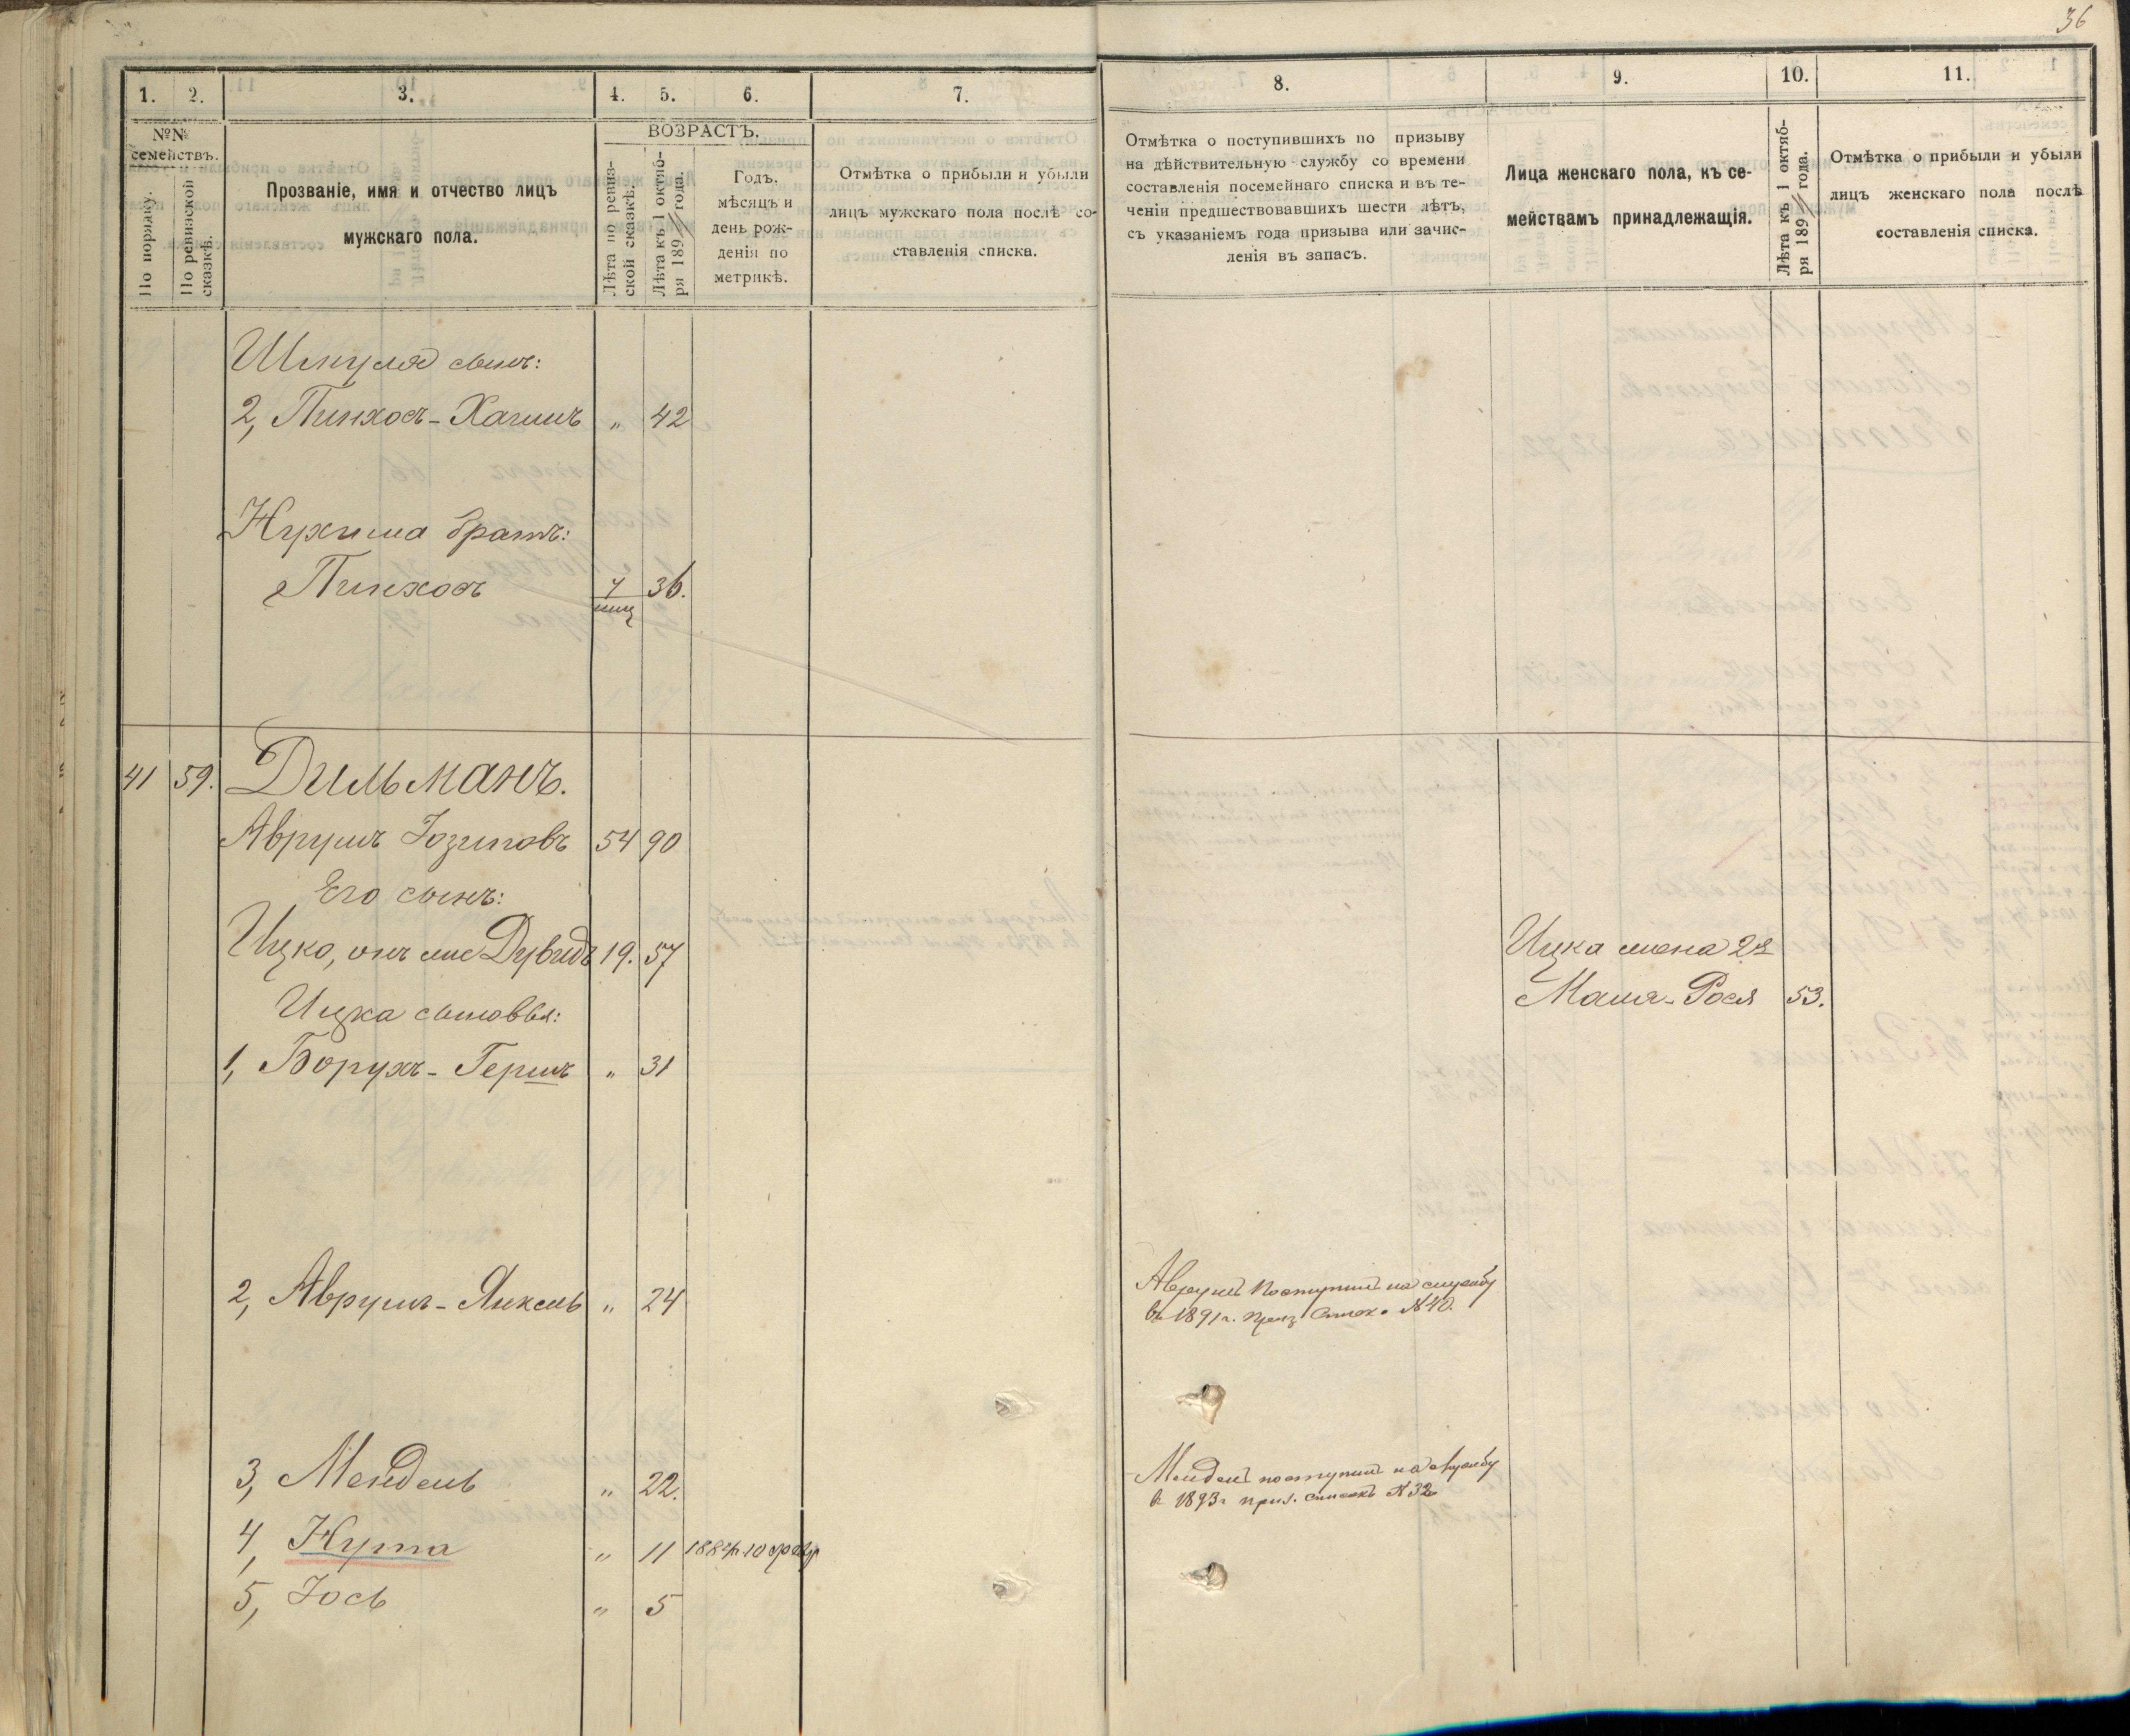 36
1. 2. 3. 4. 5. 6. 7. 8. 9. 10. 11.
№№ семействъ.
По порядку.
По ревизской сказкѣ.
Прозваніе, имя и отчество лицъ
мужскаго пола.
ВОЗРАСТЪ.
Лѣта по ревиз-
ской сказкѣ.
Лѣта къ 1 октяб-
ря 189 года.
Годъ,
мѣсяцъ и
день рож-
денія по
метрикѣ.
Отмѣтка о прибыли и убыли
лицъ мужскаго пола послѣ со-
ставленія списка.
Отмѣтка о поступившихъ по призыву
на дѣйствительную службу со времени
составленія посемейнаго списка и въ те-
ченіи предшествовавшихъ шести лѣтъ,
съ указаніемъ года призыва или зачис-
ленія въ запасъ.
Лица женскаго пола, къ се-
мействамъ принадлежащія.
Лѣта къ 1 октяб-
ря 189 года.
Отмѣтка о прибыли и убыли
лицъ женскаго пола послѣ
составленія списка.
Шмуля сынъ:
2, Пинхосъ-Хаимъ " 42
Нухима братъ:
Пинхосъ 36.
41 59. Дильманъ.
Аврумъ Іозиповъ 54 90
Его сынъ:
Ицко, онъ же Дувидъ 19. 57
Ицка жена 2я
Маша-Рося 53.
Ицка сыновья:
1, Борухъ-Гершъ " 31
2, Аврумъ-Янкель " 24
Аврумъ поступилъ на службу
въ 1891 г. приз. списокъ №40.
3, Мендель " 22.
Мендель поступилъ на службу
в 1893 г приз. списокъ №32
4, Нута " 11
5, Іось " 5